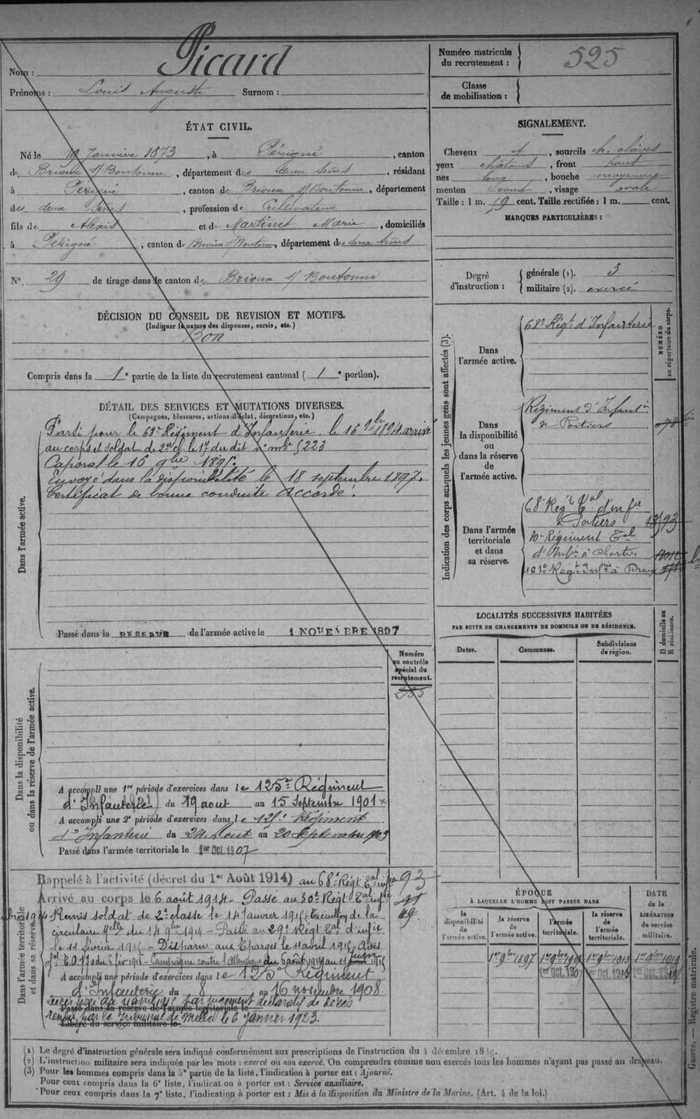 Picard
Nom :
Prénoms : Louis Auguste Surnom :
ÉTAT CIVIL.
Né le Janvier 1873, à Périgné, canton
de Brioux s/ Boutonne, département des deux Sèvres, résidant
à Périgné, canton de Brioux s/ Boutonne, département
des deux Sèvres, profession de Cultivateur
fils de Alexis et de Martinet Marie, domiciliés
à Périgné, canton Brioux Boutonne, département deux Sèvres
N° 29 de tirage dans le canton de Brioux s/ Boutonne
DÉCISION DU CONSEIL DE REVISION ET MOTIFS.
(Indiquer la nature des dispenses, sursis, etc.)
Bon
Compris dans la 1e partie de la liste du recrutement cantonal ( 1e portion).
DÉTAIL DES SERVICES ET MUTATIONS DIVERSES.
(Campagnes, blessures, actions d'éclat, décorations, etc.)
Dans l'armée active.
Parti pour le 68e Régiment d'Infanterie le 16 9bre 1894 arrivé
au corps et soldat de 2e cl. le 17 du dit. n° mle 5223
Caporal le
Envoyé dans la disponibilité le 18 septembre 1897.
Certificat de bonne conduite accordé.
Passé dans la RÉSERVE de l'armée active le 1 NOVEMBRE 1897
Numéro
au contrôle
spécial du
recrutement.
Dans la disponibilité
ou dans la réserve de l'armée active.
A accompli une 1re période d'exercices dans le 125e Régiment
d'Infanterie du 19 aout au 15 Septembre 1901
A accompli une 2e période d'exercices dans le Régiment
d'Infanterie du 24 Aout au 20 Septembre 1903
Passé dans l'armée territoriale le 1er Oct. 1907
Dans l'armée territoriale
et dans sa réserve.
Rappelé à l'activité (décret du 1er Août 1914) au 68e Régt Eal infie
Arrivé au corps le 6 août 1914 - Passé au 30e Régt Eal infie
Remis soldat de 2e classe le 14 Janvier 1915 Exécution de la
circulaire du 14 9bre 1914 - Passé au 29e Régt Eal d'infie
le 11 février 1915 - Disparu aux Eparges le 1915
Campagne contre l'Allemagne du
A accompli une période d'exercices dans le 125e Régiment
d'Infanterie du 8 au 16 novembre 1908
par jugement déclaratif de décès
rendu par le Tribunal de Melle le 6 Janvier 1923.
Passé dans la réserve de l'armée territoriale le
Libéré du service militaire le
Numéro matricule
du recrutement : 525
Classe
de mobilisation :
SIGNALEMENT.
Cheveux et sourcils ch. clairs
yeux châtains, front haut
nez long, bouche moyenne
menton rond, visage ovale
Taille : 1 m. cent. Taille rectifiée : 1 m. cent.
MARQUES PARTICULIÈRES :
Degré
d'instruction :
générale (1). 3
militaire (2). exercé
Indication des corps auxquels les jeunes gens sont affectés (3).
NUMÉRO
au répertoire du corps.
Dans
l'armée active.
68e Régt d'Infanterie
Dans
la disponibilité
ou dans la réserve
de l'armée active.
Régiment d'Infantie
de Poitiers
Dans l'armée
territoriale
et dans
sa réserve.
68e Régt Eal d'infie
Poitiers
Régiment Eal
d'Infie à
Régt Infie à Dreux
LOCALITÉS SUCCESSIVES HABITÉES
PAR SUITE DE CHANGEMENTS DE DOMICILE OU DE RÉSIDENCE.
Dates.
Communes.
Subdivisions
de région.
D domicile ou
R résidence.
ÉPOQUE
À LAQUELLE L'HOMME DOIT PASSER DANS
la
disponibilité
de
l'armée active.
la réserve
de
l'armée active.
l'armée
territoriale.
la réserve
de l'armée
territoriale.
DATE
DE LA
LIBÉRATION
DU SERVICE
militaire.
1er 9bre 1897
Guerre. — Registre matricule.
(1) Le degré d'instruction générale sera indiqué conformément aux prescriptions de l'instruction du 4 décembre 1889.
(2) L'instruction militaire sera indiquée par les mots : exercé ou non exercé. On comprendra comme non exercés tous les hommes n'ayant pas passé au drapeau.
(3) Pour les hommes compris dans la 5e partie de la liste, l'indication à porter est : Ajourné.
Pour ceux compris dans la 6e liste, l'indication à porter est : Service auxiliaire.
Pour ceux compris dans la 7e liste, l'indication à porter est : Mis à la disposition du Ministre de la Marine. (Art. 4 de la loi.)